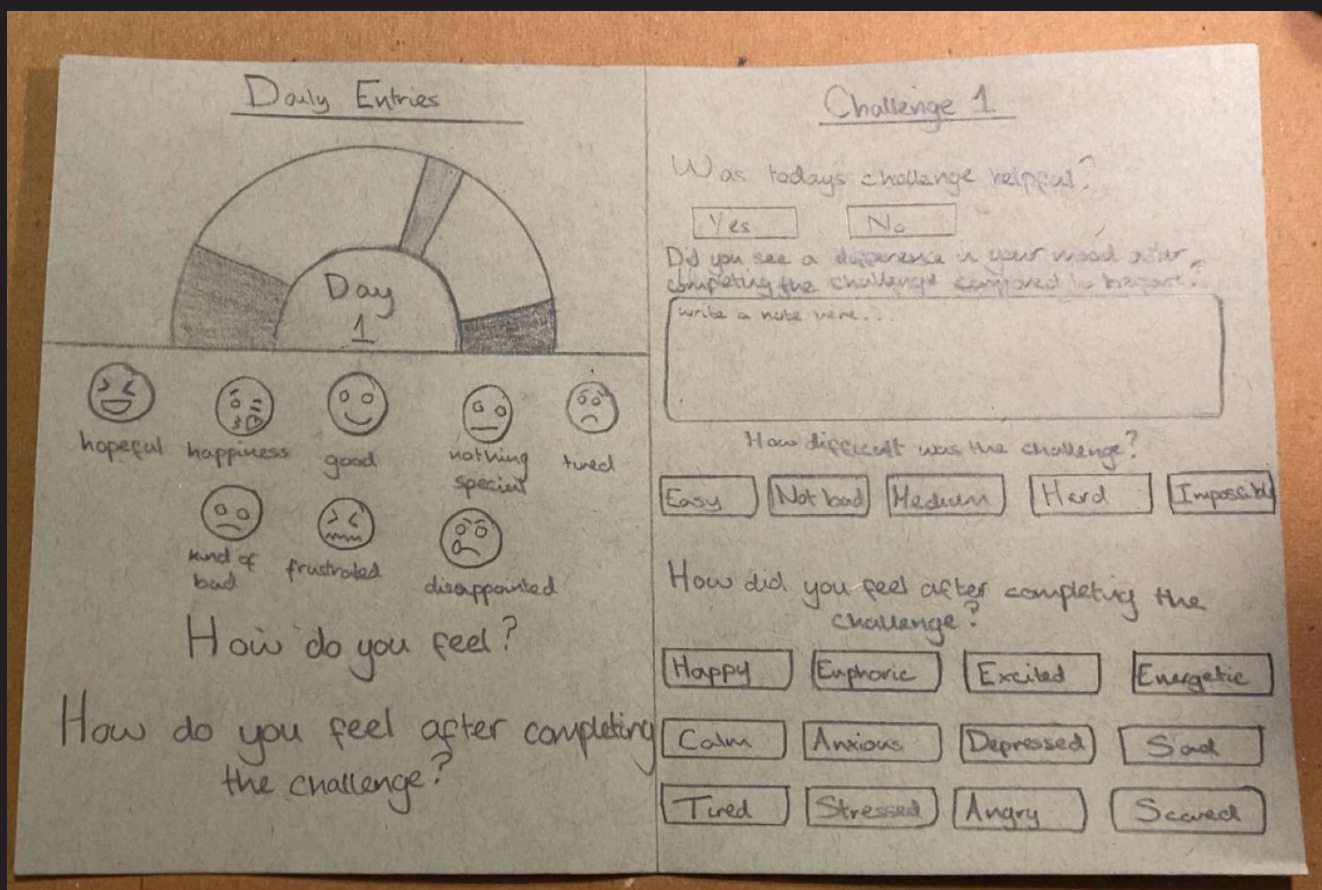 Daily Entries
Day
1
hopeful
happiness
good
nothing
special
tired
kind of
bad
frustrated
disappointed
How do you feel?
How do you feel after completing
the challenge?
Challenge 1.
Was todays challenge helpful?
Yes
No
Did you see a difference in your mood after
completing the challenge compared to before?
write a note here...
How difficult was the challenge?
Easy
Not bad
Medium
Hard
Impossible
How did you feel after completing the
challenge?
Happy
Euphoric
Excited
Energetic
Calm
Anxious
Depressed
Sad
Tired
Stressed
Angry
Scared